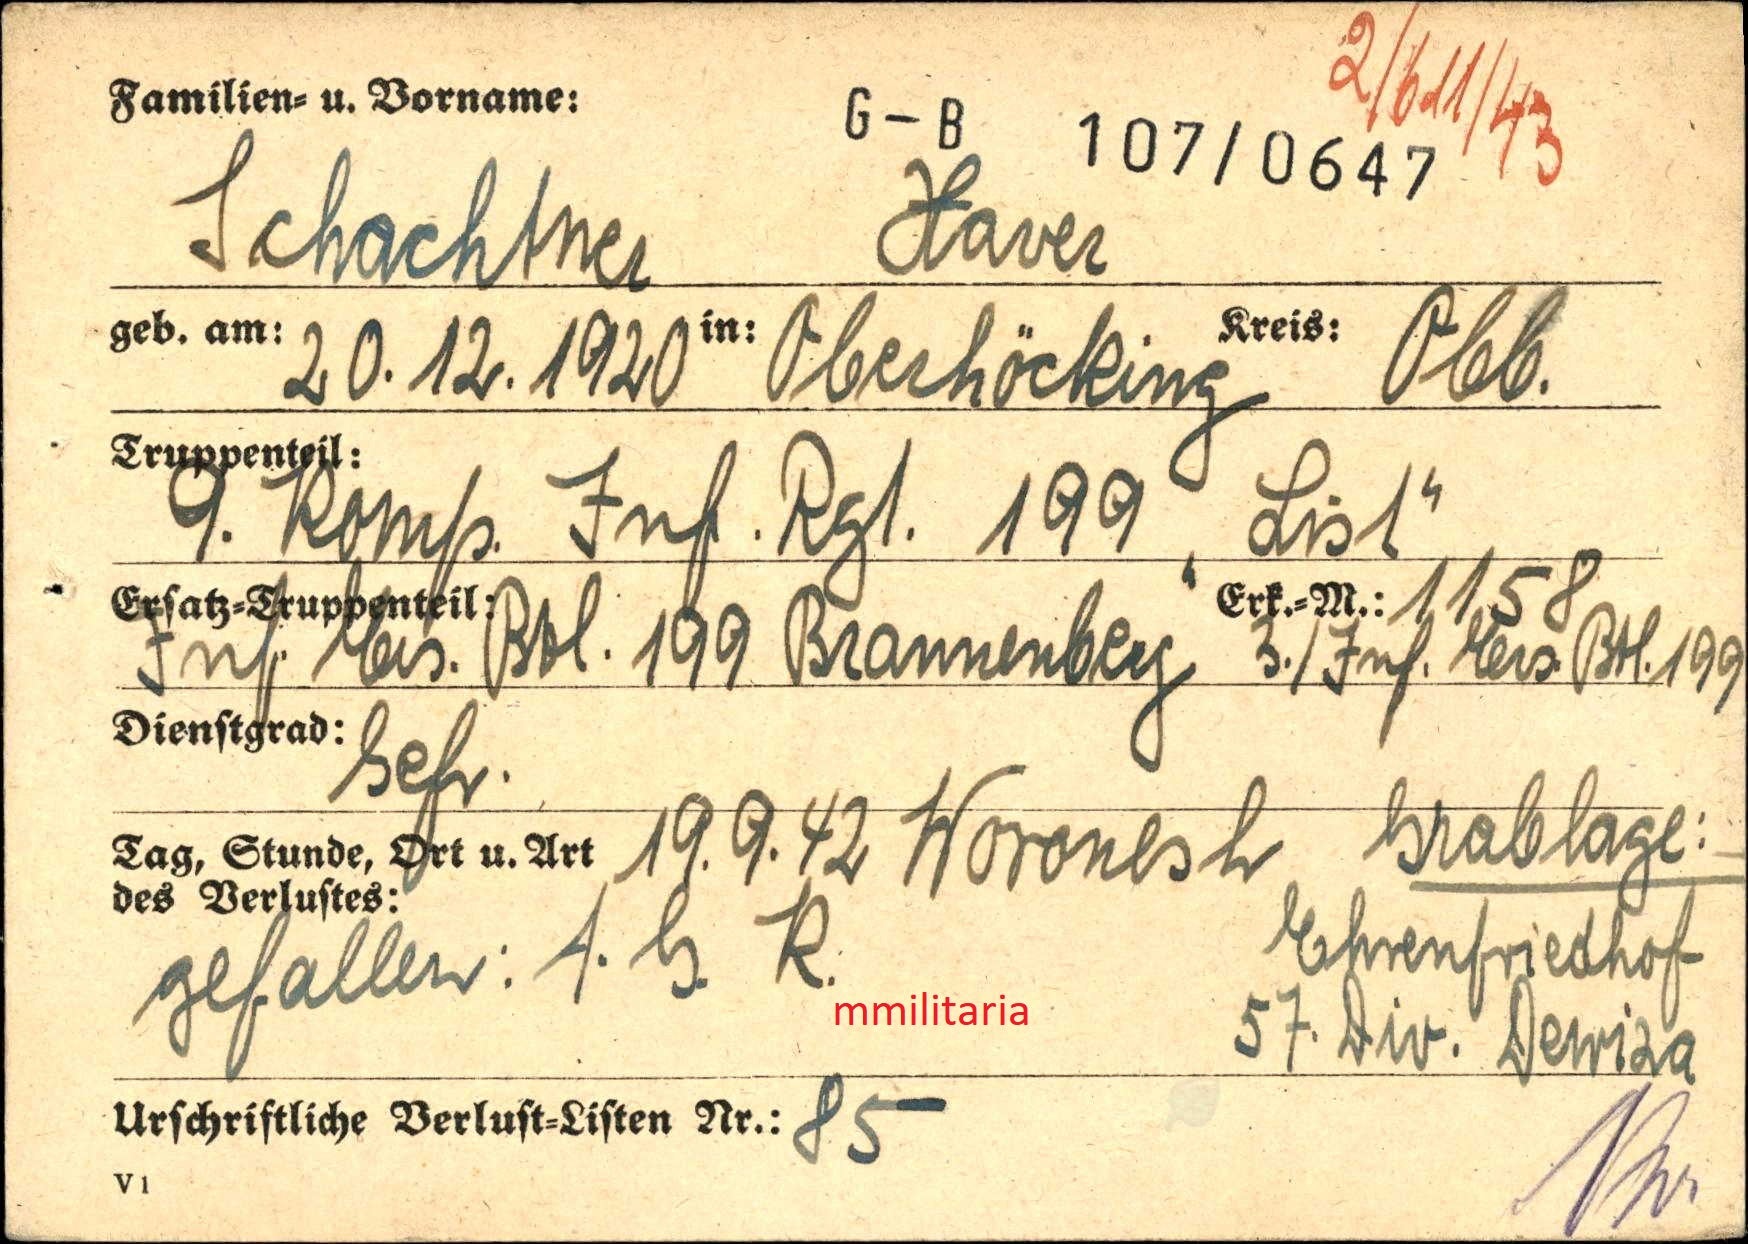 2/611/43
Familien- u. Vorname:
G-B 107/0647
Schachtner Xaver
geb. am: 20.12.1920 in: Oberhöcking Kreis: Obb.
Truppenteil:
9. Komp. Inf. Rgt. 199 „List“
Ersatz-Truppenteil: Erk.-M.: 1158
Inf. Ers. Btl. 199 Brannenberg 3./Inf. Ers. Btl. 199
Dienstgrad: Gefr.
Tag, Stunde, Ort u. Art 19.9.42 Woronesh Grablage:
des Verlustes:
gefallen: A. G. K. Ehrenfriedhof
mmilitaria
57. Div. Dewiza
Urschriftliche Verlust-Listen Nr.: 85
V 1